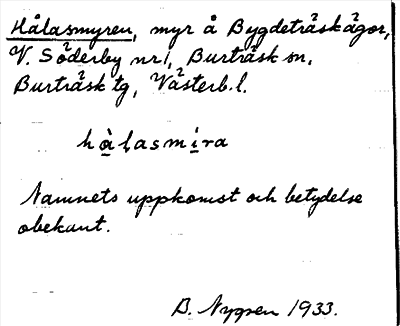 Hålasmyren, myr å Bygdeträskägor,
V. Söderby nr 1, Burträsk sn.
Burträsk tg, Västerb. l.
hàlasmíra
Namnets uppkomst och betydelse
obekant.
B. Nygren 1933.